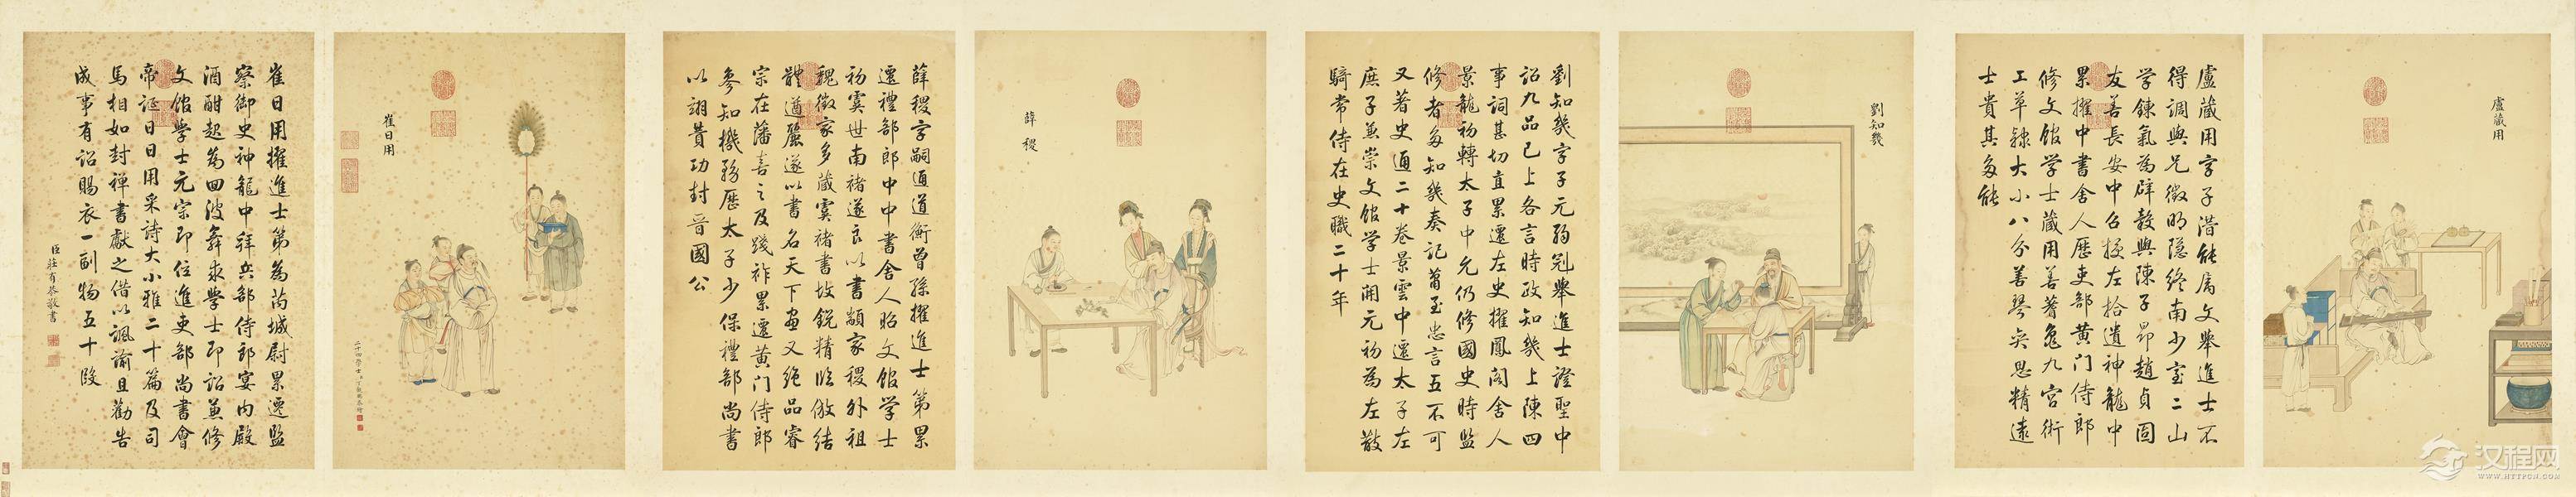 盧藏用
盧藏用字子潛能属文舉進士不
得調與兄徵明隐終南少室二山
学鍊氣為辟穀與陳子昂趙貞固
友善長安中召授左拾遺神龍中
累擢中書舍人歷吏部黄门侍郎
修文館学士藏用善蓍龜九宫術
工草隸大小八分善琴奕思精遠
士貴其多能
劉知幾
劉知幾字子元弱冠舉進士證聖中
詔九品已上各言時政知幾上陳四
事詞甚切直累遷左史擢鳳閣舍人
景龍初轉太子中允仍修國史時監
修者多知幾奏記蕭至忠言五不可
又著史通二十卷景雲中遷太子左
庶子兼崇文館学士開元初為左散
騎常侍在史職二十年
薛稷
薛稷字嗣通道衡曾孫擢進士第累
遷禮部郎中中書舍人昭文館学士
初虞世南褚遂良以書顓家稷外祖
魏徵家多蔵虞褚書故銳精臨倣结
體遒麗遂以書名天下畫又絶品睿
宗在藩喜之及踐祚累遷黄门侍郎
參知機務歷太子少保禮部尚書
以翊贊功封晉國公
崔日用
二十四學士 丁觀鵬恭繪
崔日用擢進士第為芮城尉累遷監
察御史神龍中拜兵部侍郎宴内殿
酒酣起為回波舞求學士即詔兼修
文館学士元宗即位進吏部尚書會
帝诞日日用采詩大小雅二十篇及司
馬相如封禅書獻之借以諷諭且勸告
成事有詔賜衣一副物五十段
臣莊有恭敬書
汉程网
WWW.HTTPCN.COM